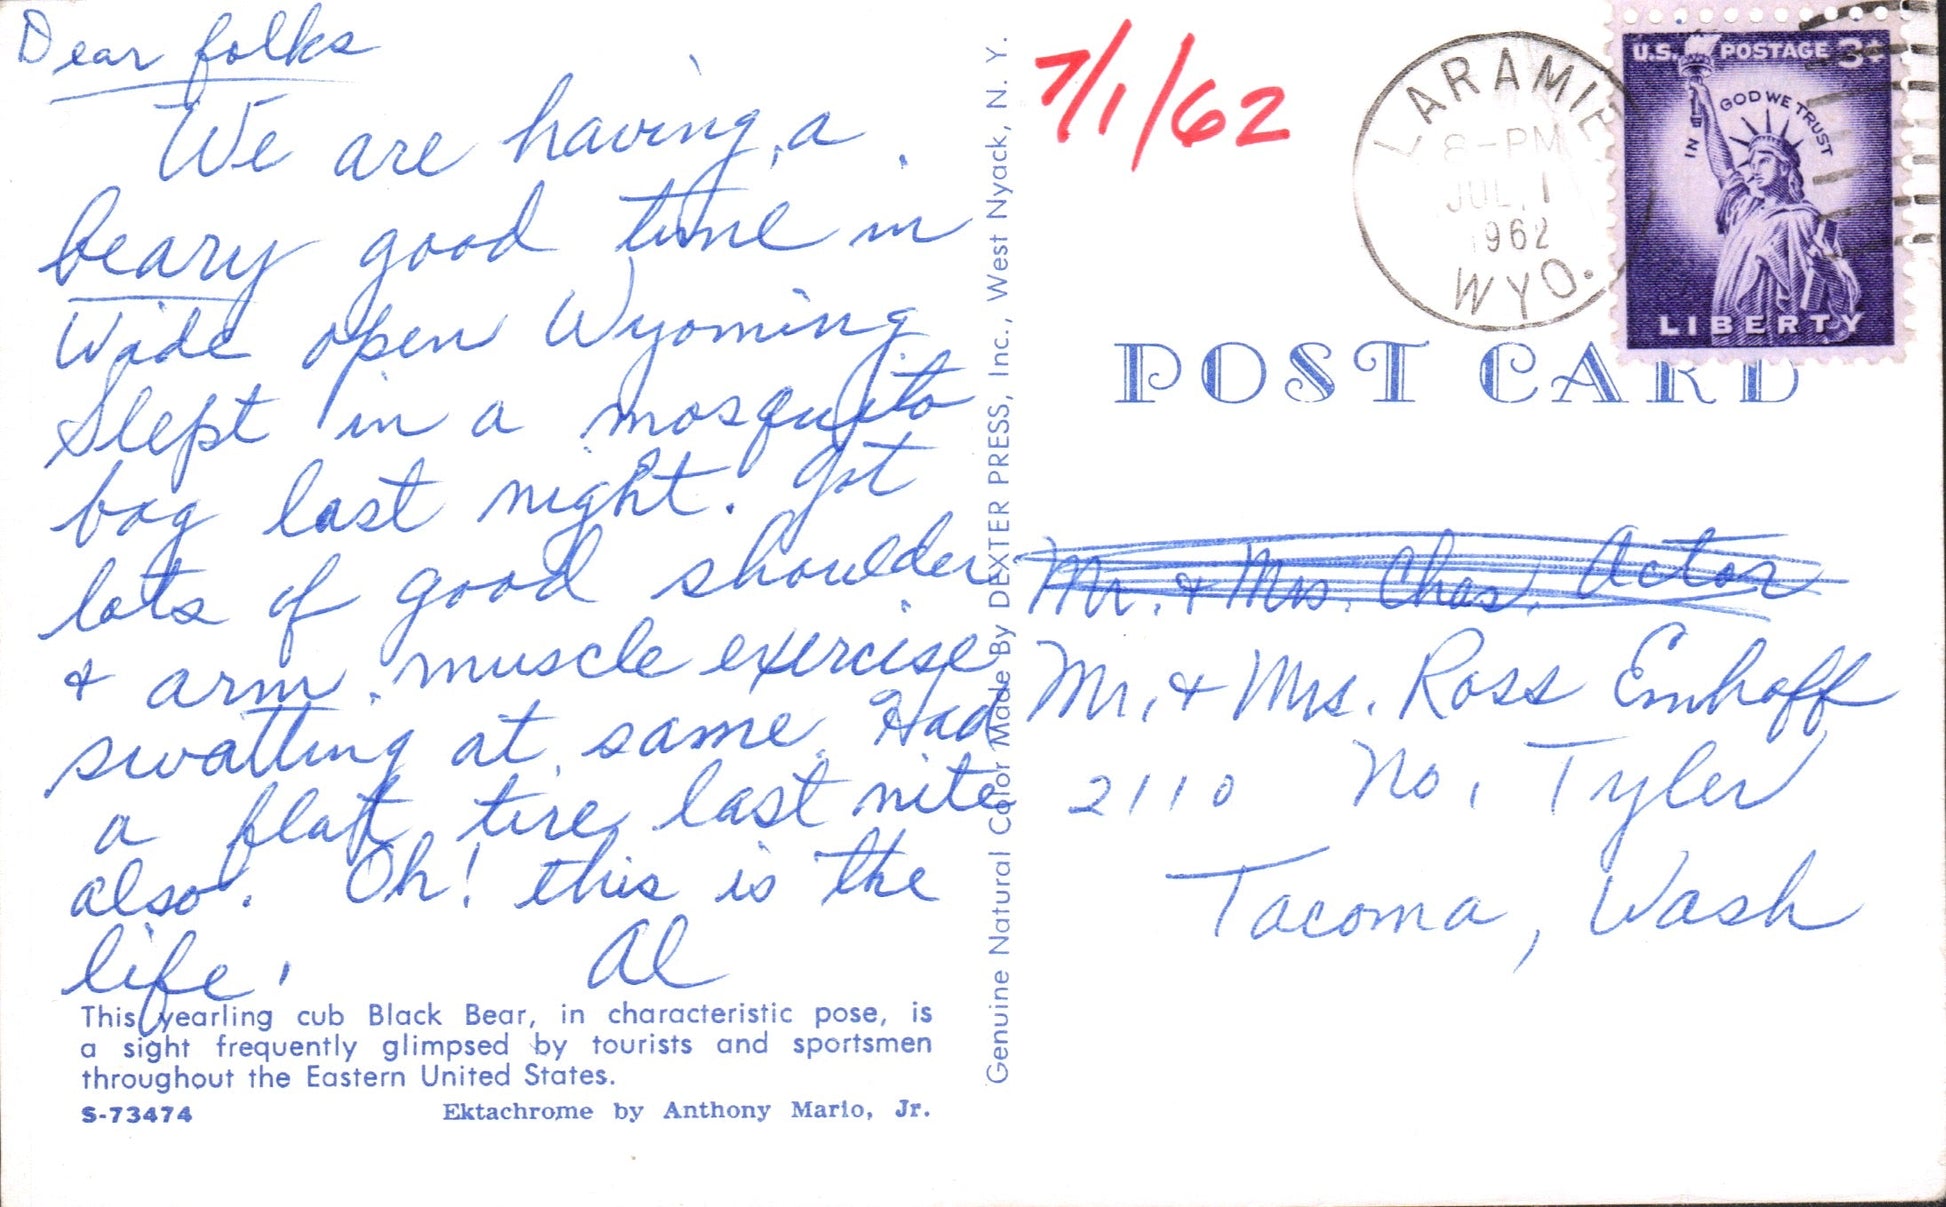 Dear folks
We are having a
beary good time in
Wide open Wyoming
Slept in a mosquito
bag last night. Got
lots of good shoulder
& arm muscle exercise
swatting at same. Had
a flat tire last nite
also. Oh! this is the
life. Al
This yearling cub Black Bear, in characteristic pose, is
a sight frequently glimpsed by tourists and sportsmen
throughout the Eastern United States.
S-73474 Ektachrome by Anthony Mario, Jr.
Genuine Natural Color Made By DEXTER PRESS, Inc., West Nyack, N. Y.
7/1/62
LARAMIE
8-PM
JUL 1
1962
WYO.
U.S. POSTAGE 3¢
IN GOD WE TRUST
LIBERTY
POST CARD
Mr. & Mrs. Chas. Actor
Mr. & Mrs. Ross Emhoff
2110 No. Tyler
Tacoma, Wash